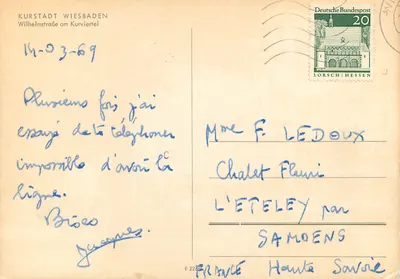 KURSTADT WIESBADEN
Wilhelmstraße am Kurviertel
14-03-69
Plusieurs fois j'ai
essayé de te téléphoner
impossible d'avoir la
ligne.
Bises
Jacques
DEUTSCHE BUNDESPOST
20
LORSCH/HESSEN
Mme F. LEDOUX
Chalet Fleuri
L'ETELEY par
SAMOENS
FRANCE Haute Savoie